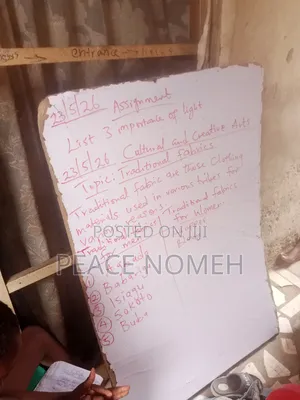 entrance
23/5/26 Assignment
List 3 importance of light
23/5/26. Cultural and Creative Arts
Topic: Traditional Fabrics
Traditional fabric are those clothing
materials used in various tribes for
various reasons.
Traditional fabric
for women
for men
① Baban
② Isiagu
④ Sokoto
⑤ Buba
POSTED ON JIJI
PEACE NOMEH